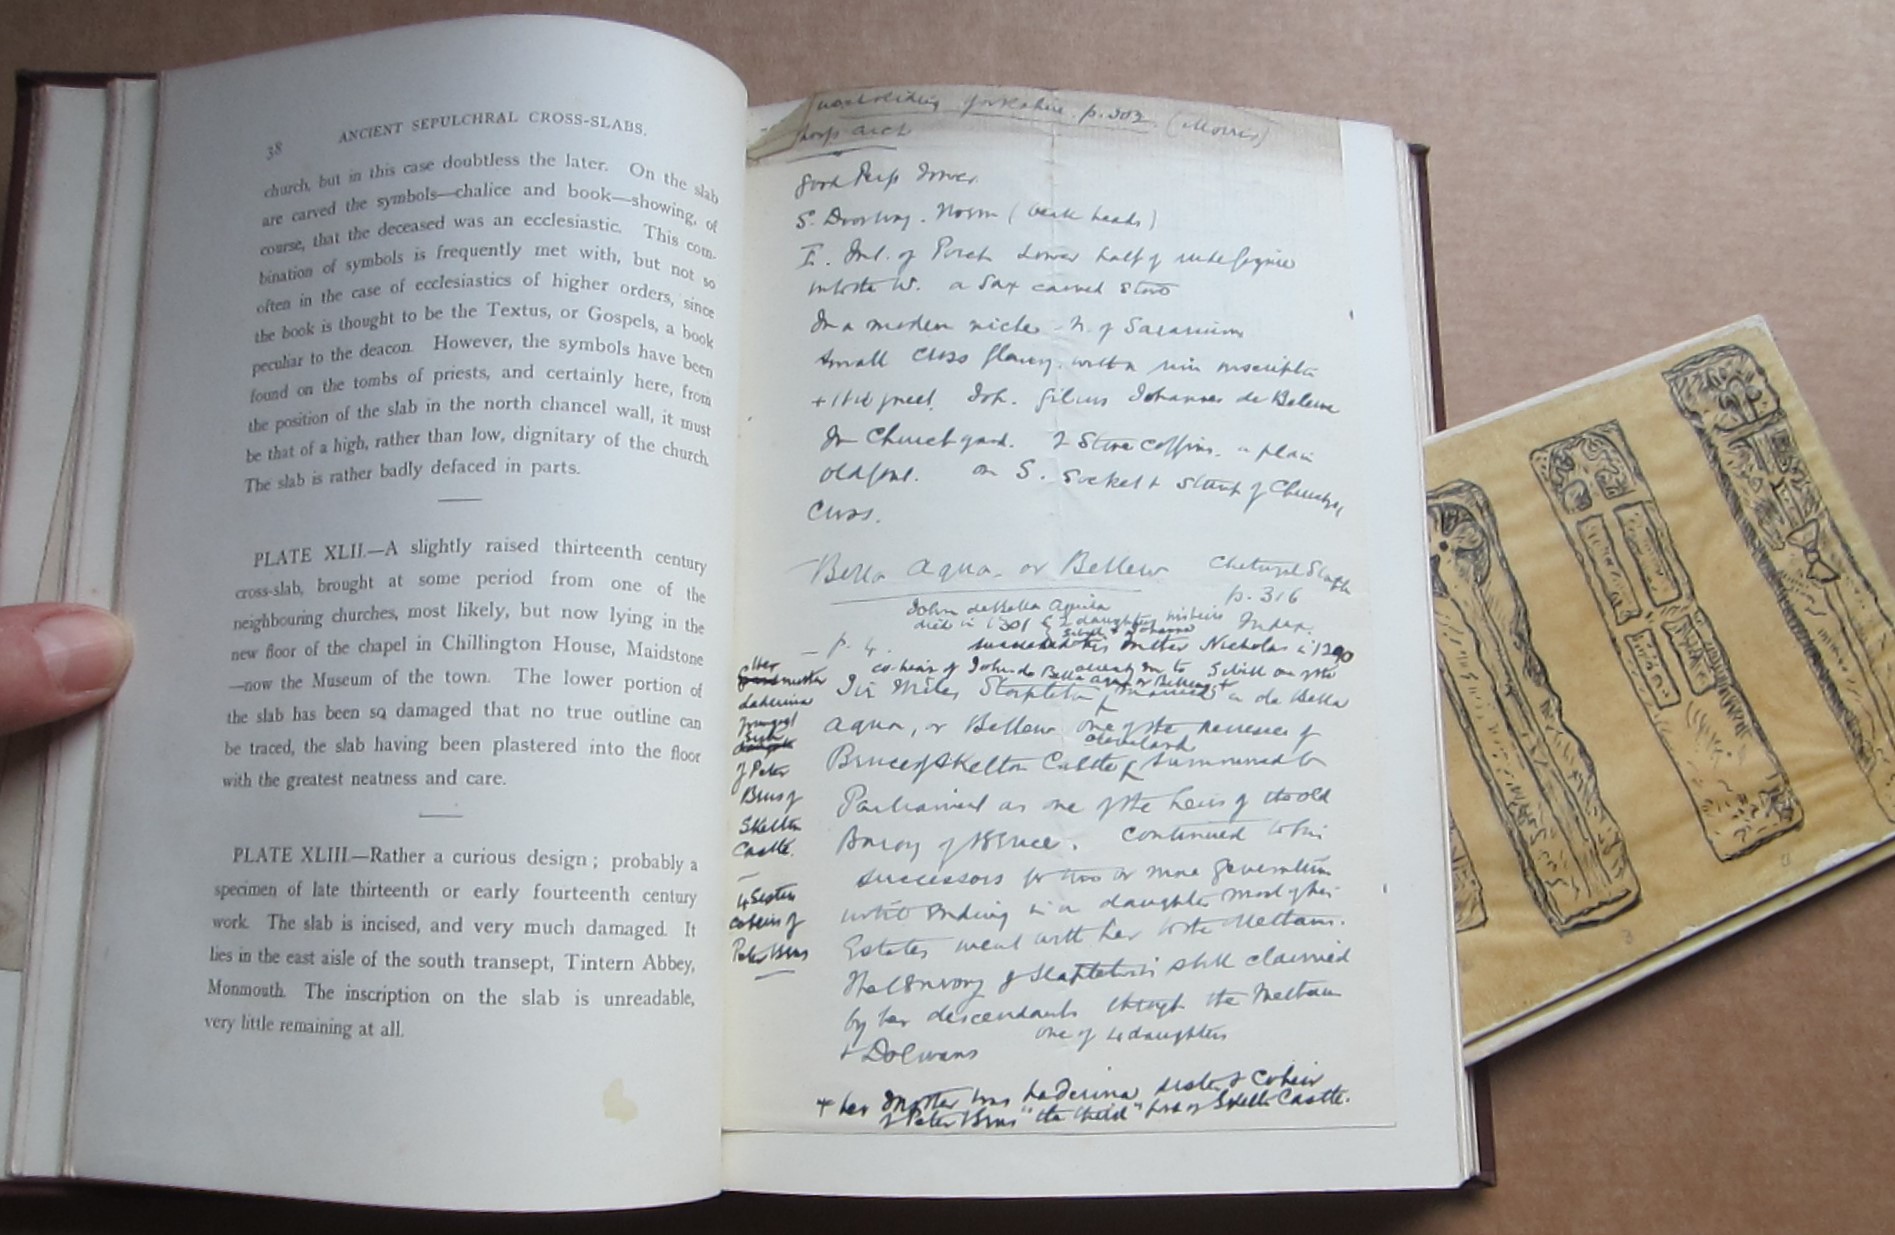 38
ANCIENT SEPULCHRAL CROSS-SLABS.
church, but in this case doubtless the later. On the slab
are carved the symbols—chalice and book—showing, of
course, that the deceased was an ecclesiastic. This com-
bination of symbols is frequently met with, but not so
often in the case of ecclesiastics of higher orders, since
the book is thought to be the Textus, or Gospels, a book
peculiar to the deacon. However, the symbols have been
found on the tombs of priests, and certainly here, from
the position of the slab in the north chancel wall, it must
be that of a high, rather than low, dignitary of the church.
The slab is rather badly defaced in parts.
PLATE XLII.—A slightly raised thirteenth century
cross-slab, brought at some period from one of the
neighbouring churches, most likely, but now lying in the
new floor of the chapel in Chillington House, Maidstone
—now the Museum of the town. The lower portion of
the slab has been so damaged that no true outline can
be traced, the slab having been plastered into the floor
with the greatest neatness and care.
PLATE XLIII.—Rather a curious design; probably a
specimen of late thirteenth or early fourteenth century
work. The slab is incised, and very much damaged. It
lies in the east aisle of the south transept, Tintern Abbey,
Monmouth. The inscription on the slab is unreadable,
very little remaining at all.
Yorkshire p. 302 (Morris)
Thorp Arch
Good Perp Tower
S. Doorway. Norm (beak heads)
of Porch Lower half of rude figure
a Sax carved stone
In a modern niche N. of Sacrarium
small cross with a rim
Joh. filius Johannes de
In Church yard. 2 Stone coffins. a plain
old font. on S. Socket & Stump of Churchyard
Cross.
Bella Aqua, or Bellew
p. 316
John de Bella Aqua
died in 1301 & 2 daughters
Sibil & Johanna
p. 4. succeeded his brother Nicholas in 1290
co-heir of John de Bella Aqua or Bellew
Sir Miles Stapleton married Sibill one of the
de Bella
Aqua, or Bellew one of the
Cleveland
Bruce of Skelton Castle summoned to
Parliament as one of the heirs of the old
Barony of Bruce. Continued to his
successors for two or more generations
until ending in a daughter most of her
Estates went with her to the Methams.
The Barony of Stapleton is still claimed
by her descendants through the Metham
one of 4 daughters
+ Dolmans
Her
mother
Laderina
youngest
sister
of Peter
Brus of
Skelton
Castle.
4 Sisters
coheirs of
Peter Brus
+ her Mother was Laderina sister & Coheir
of Peter Brus "the third" Lord of Skelton Castle.
3